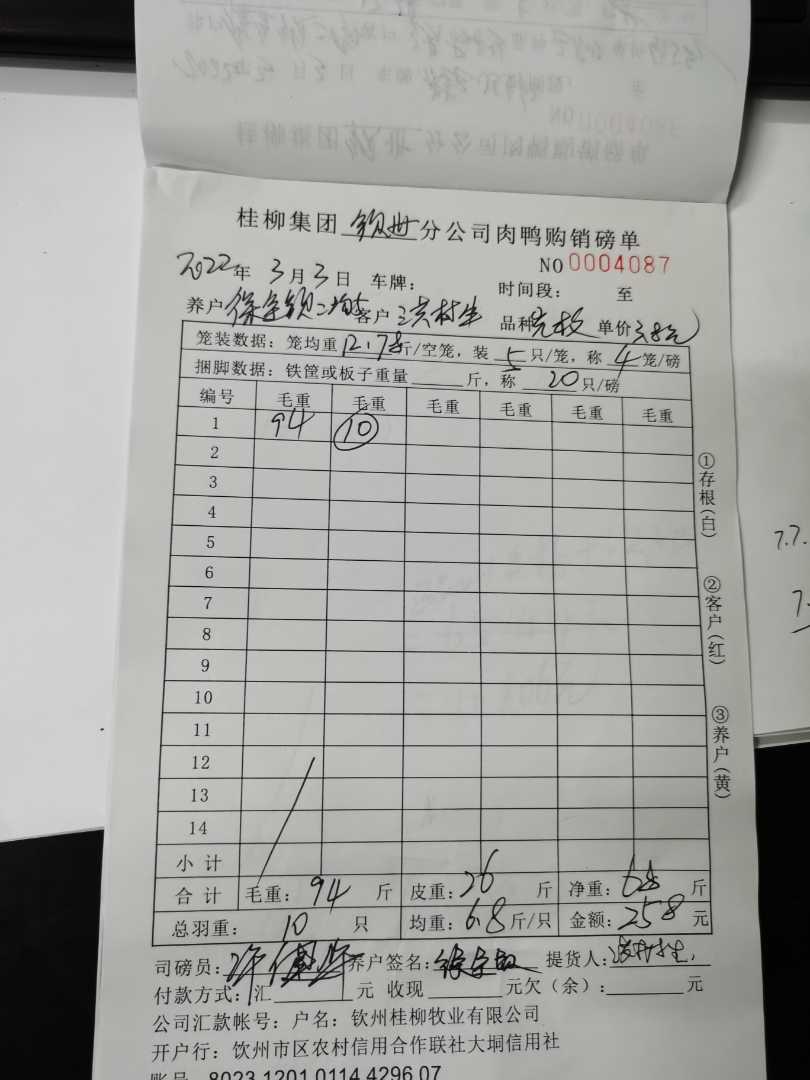 桂柳集团 钦州 分公司肉鸭购销磅单
NO 0004087
2022年 3月3日 车牌: 时间段: 至
养户 客户 洪村生 品种 单价3.8元
笼装数据: 笼均重 12.78斤/空笼, 装 5 只/笼, 称 4 笼/磅
捆脚数据: 铁筐或板子重量 斤, 称 20 只/磅
编号 毛重 毛重 毛重 毛重 毛重 毛重
1 94 10
2
3
4
5
6
7
8
9
10
11
12
13
14
小计
合计 毛重: 94 斤 皮重: 26 斤 净重: 68 斤
总羽重: 10 只 均重: 6.8 斤/只 金额: 258 元
司磅员: 养户签名: 提货人:
付款方式: 汇 元 收现 元欠(余): 元
公司汇款帐号: 户名: 钦州桂柳牧业有限公司
开户行: 钦州市区农村信用合作联社大垌信用社
账号 8023 1201 0114 4296 07
①存根(白)
②客户(红)
③养户(黄)
7.7.